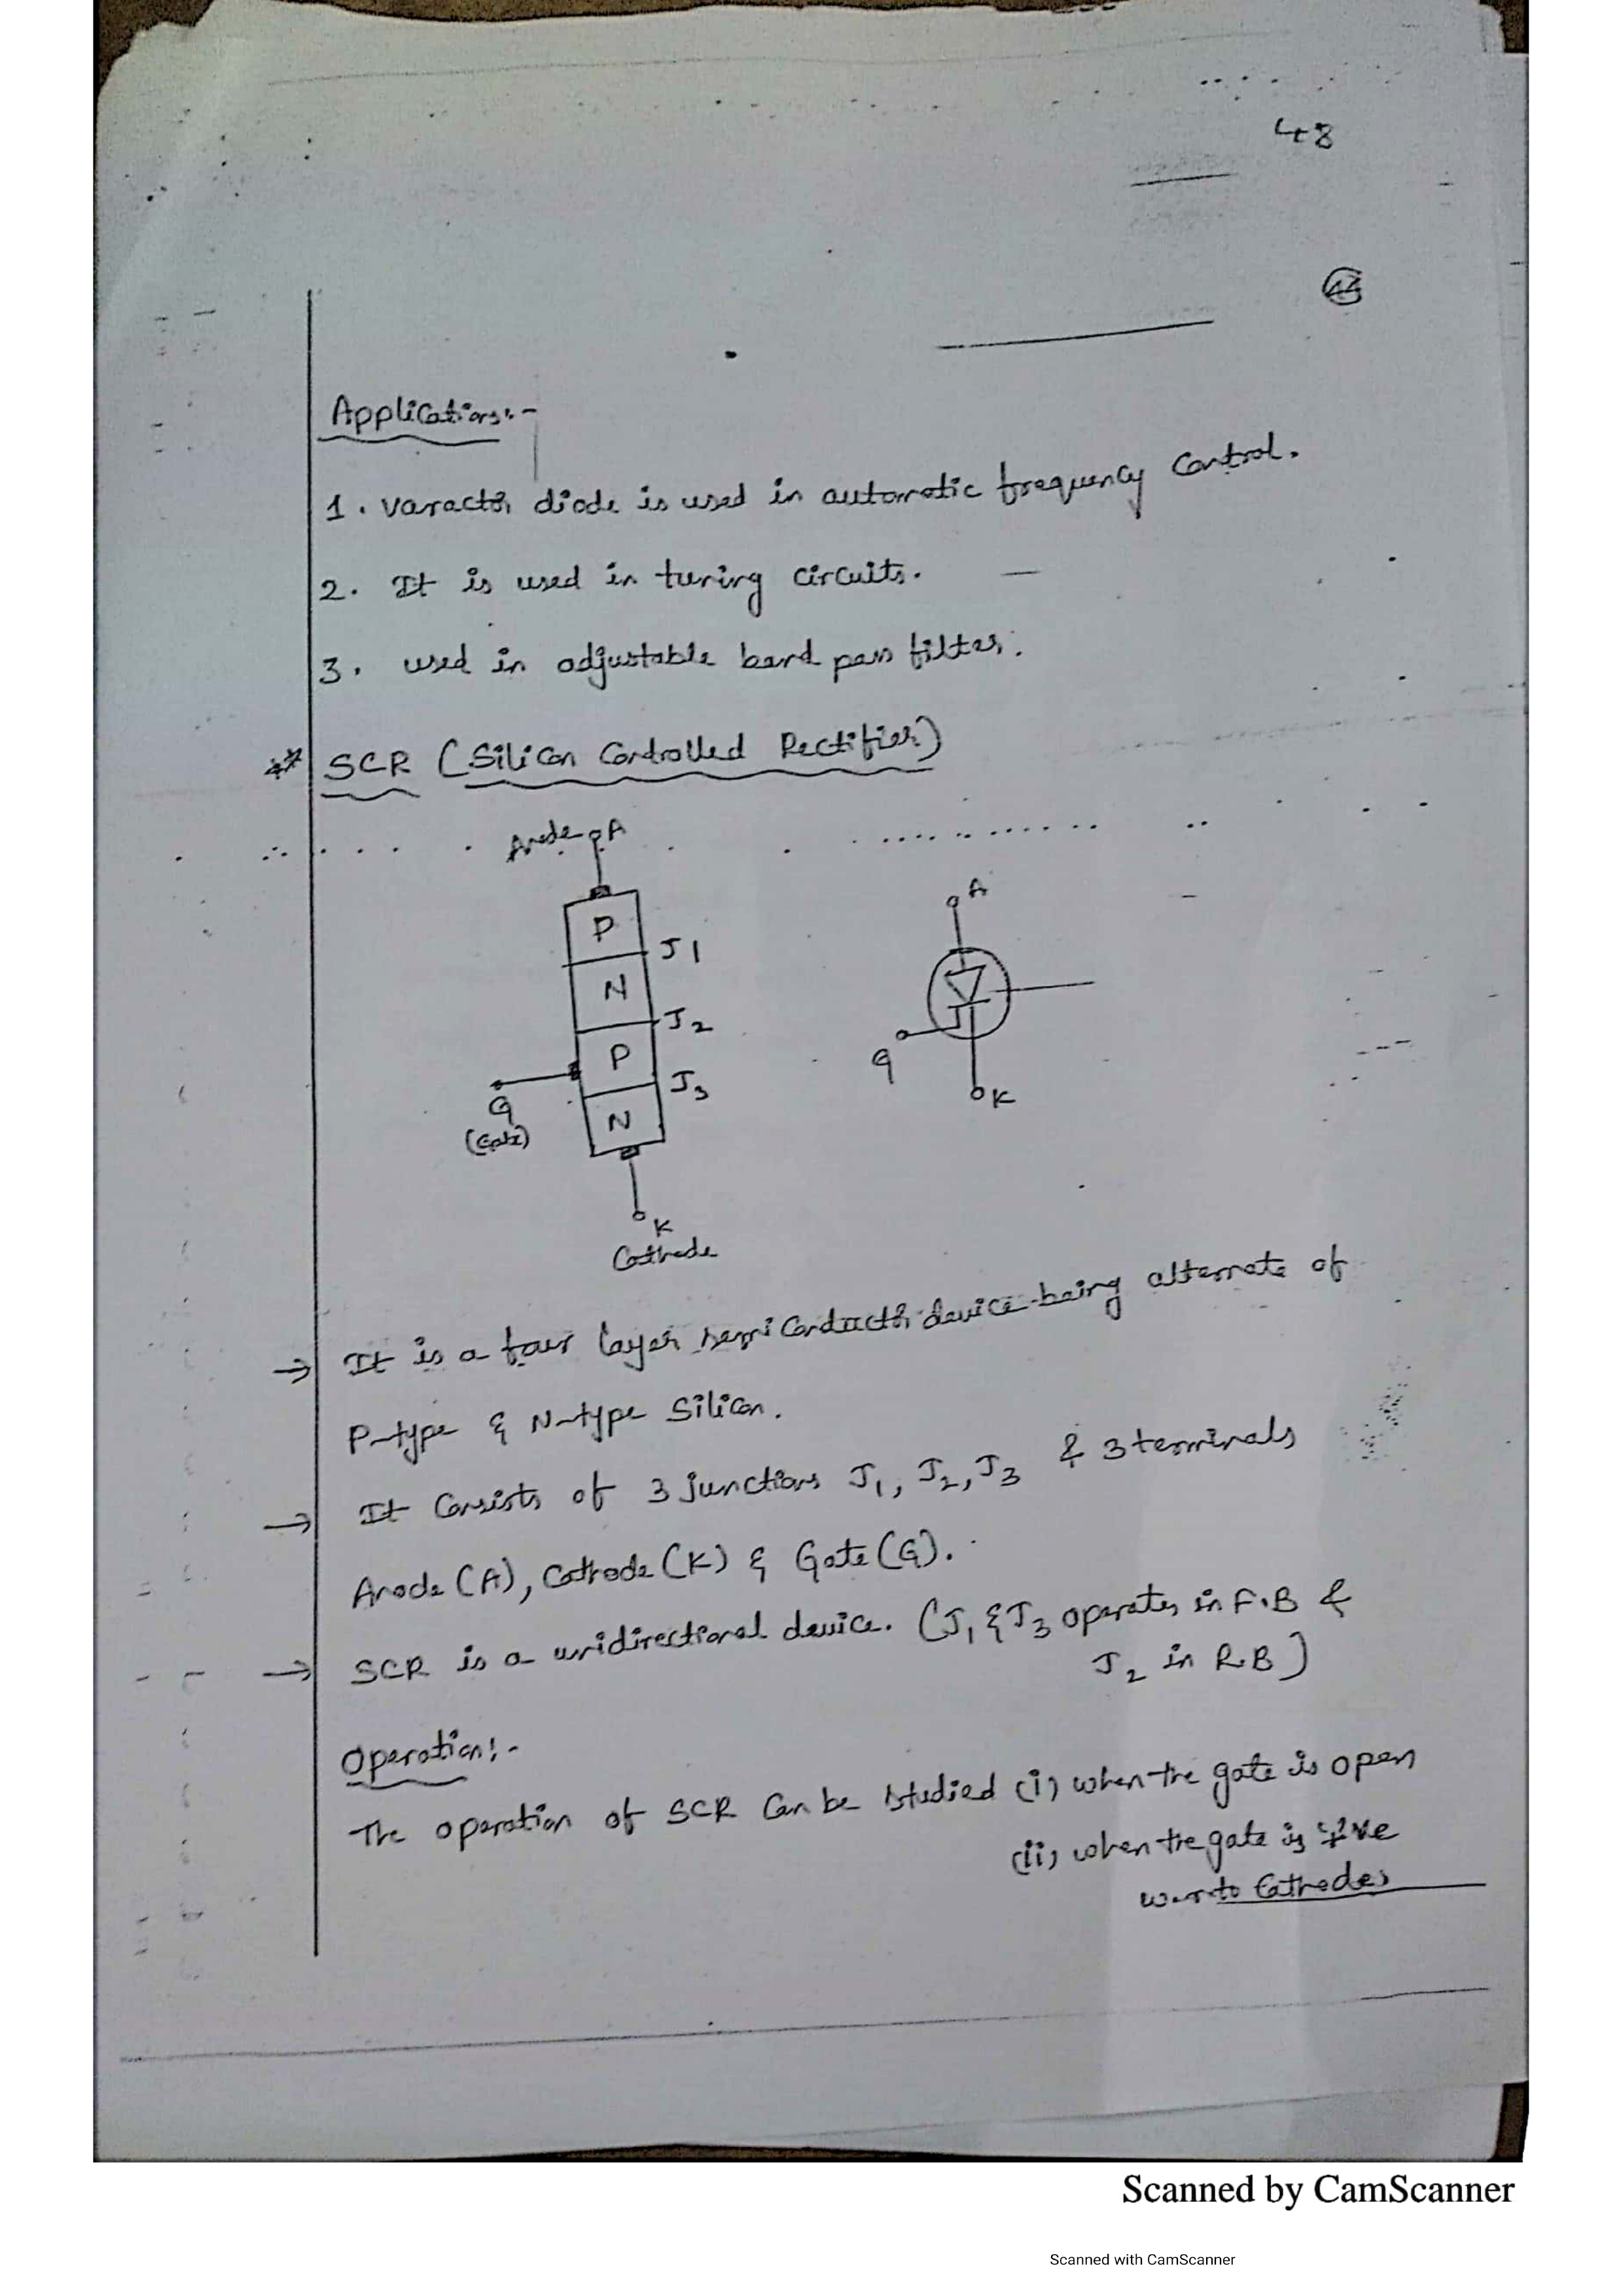 48
Applications:-
1. Varactor diode is used in automatic frequency control.
2. It is used in tuning circuits.
3. used in adjustable band pass filter.
** SCR (Silicon Controlled Rectifier)
Anode A
A
P
J1
N
J2
P
J3
G
(Gate)
N
G
K
K
Cathode
→ It is a four layer semiconductor device being alternate of
P-type & N-type Silicon.
→ It Consists of 3 junctions J1, J2, J3 & 3 terminals
Anode (A), Cathode (K) & Gate (G).
→ SCR is a unidirectional device. (J1 & J3 operates in F.B &
J2 in R.B)
Operation:-
The operation of SCR Can be studied (i) when the gate is open
(ii) when the gate is +ve
w.r.to Cathode
Scanned by CamScanner
Scanned with CamScanner